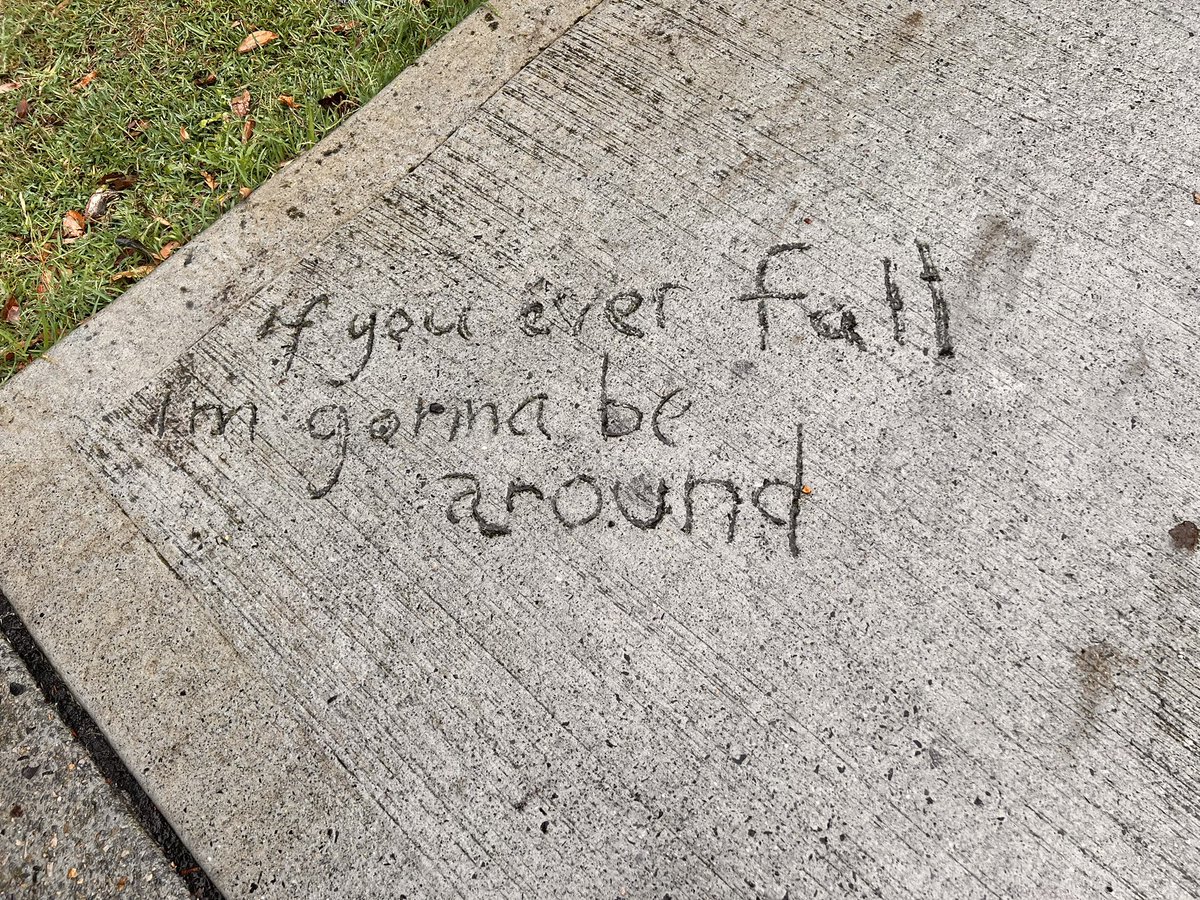 If you ever fall
Im gonna be
around